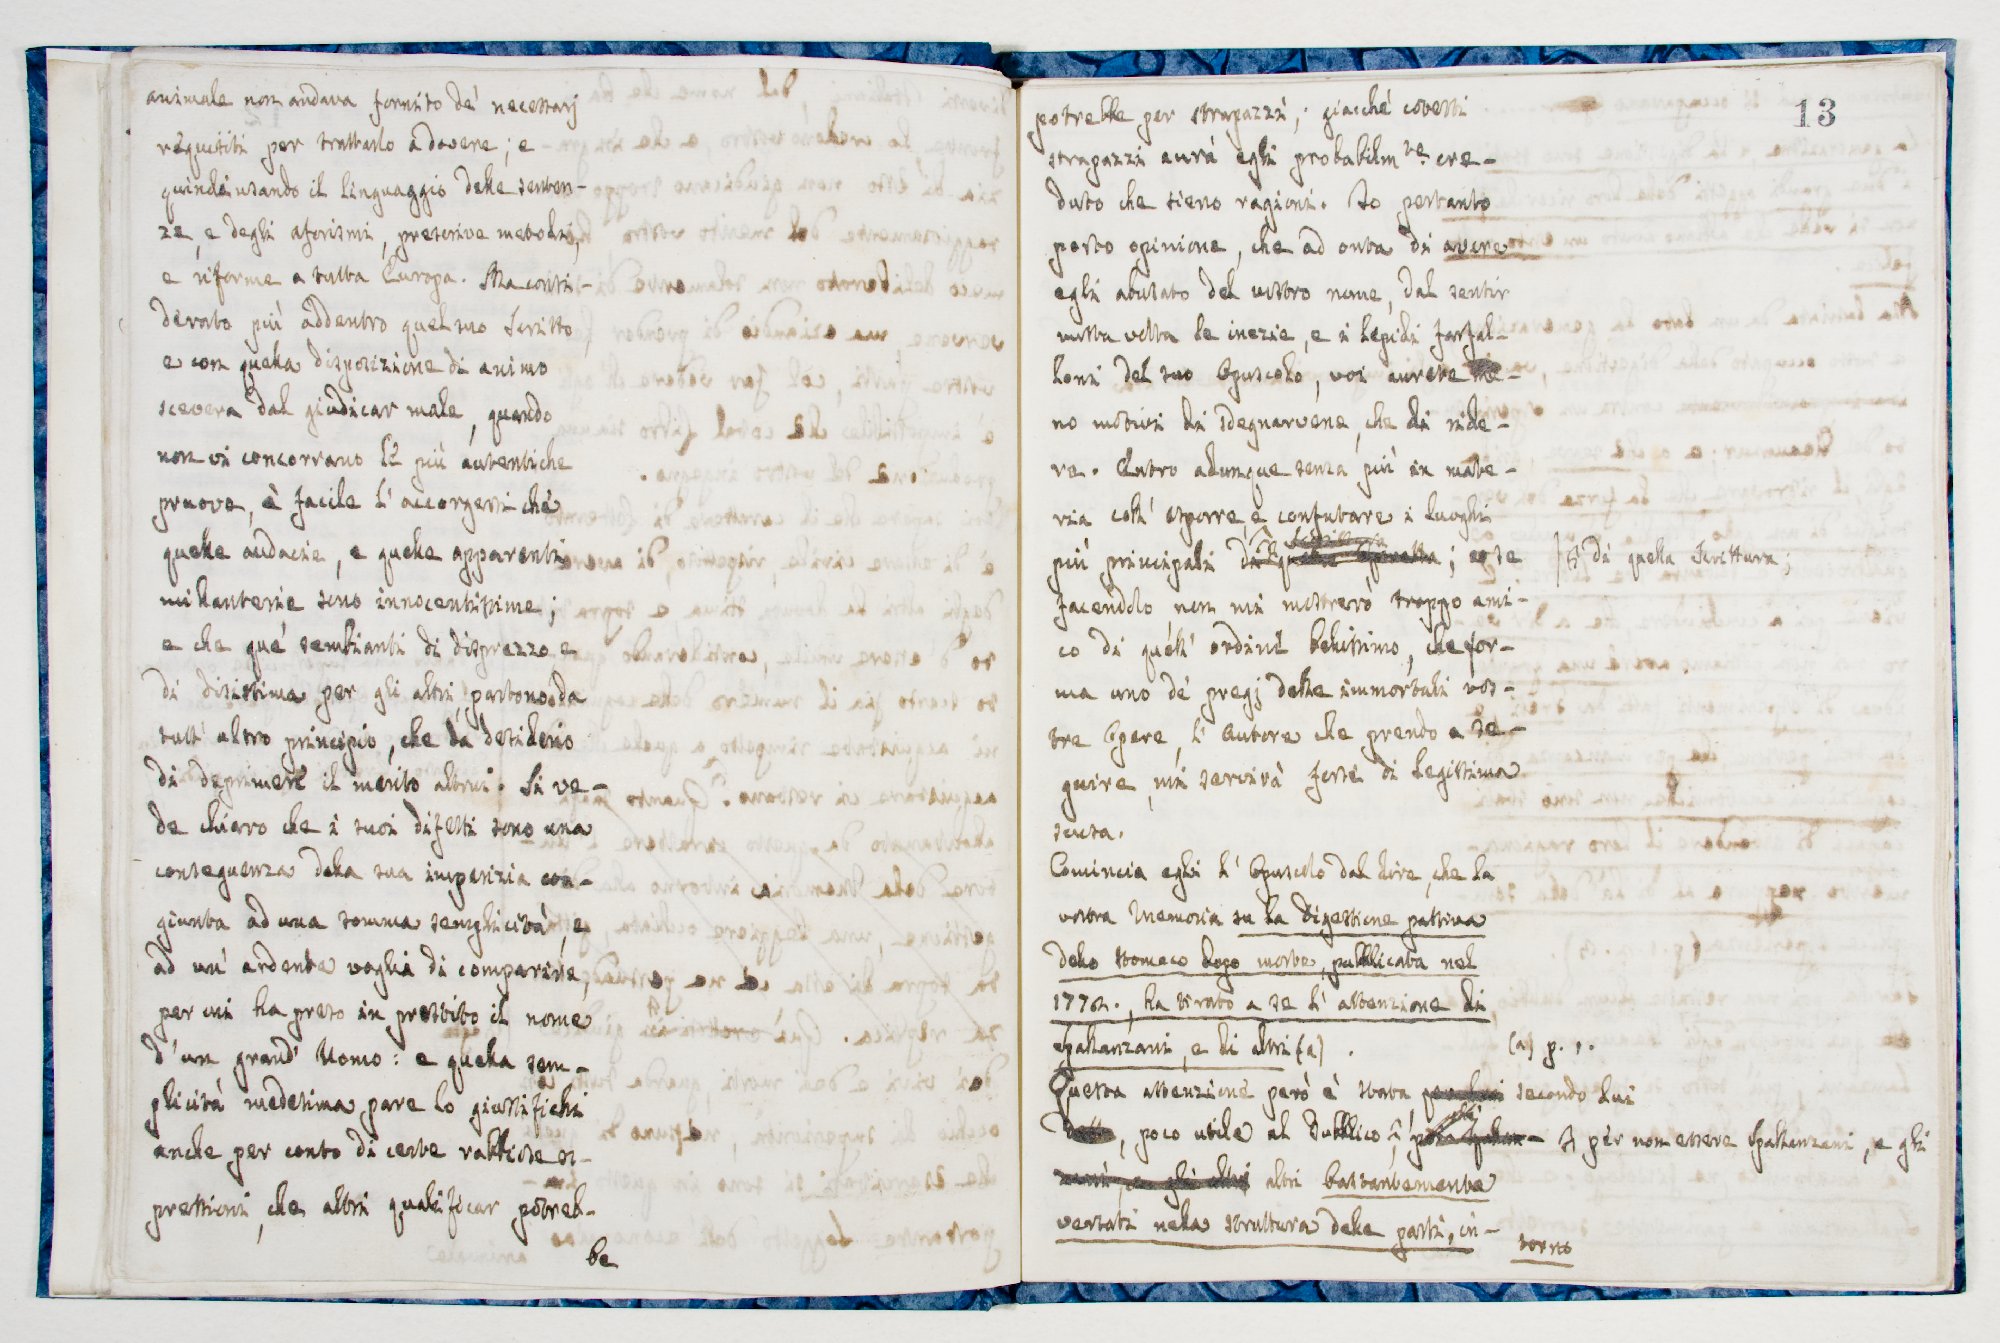 animale non andava fornito de' necessarj
requisiti per trattarlo a dovere; e
quindi usando il linguaggio delle senten-
ze, e degli aforismi, prescrive metodi,
e riforme a tutta Europa. Ma consi-
derato più addentro quel suo Scritto,
e con quella disposizione di animo
scevera dal giudicar male, quando
non vi concorrano le più autentiche
pruove, è facile l'accorgersi che
quelle audacie, e quelle apparenti
millanterie sono innocentissime;
e che que' sembianti di disprezzo, e
di disistima per gli altri, partono da
tutt'altro principio, che da desiderio
di deprimere il merito altrui. Si ve-
de chiaro che i suoi difetti sono una
conseguenza della sua imperizia con-
giunta ad una somma semplicità, e
ad un' ardente voglia di comparire,
per cui ha preso in prestito il nome
d'un grand' Uomo: e quella sem-
plicità medesima pare lo giustifichi
anche per conto di certe rabbiose es-
pressioni, che altri qualificar potreb-
be
13
potrebbe per strapazzi; giacchè cotesti
strapazzi avrà egli probabilm.te cre-
duto che sieno ragioni. Io pertanto
porto opinione, che ad onta di avere
egli abusato del vostro nome, dal sentir
questa volta le inezie, e i lepidi farfal-
loni del suo Opuscolo, voi avrete me-
no motivi di sdegnarvene, che di ride-
re. Entro adunque senza più in mate-
ria coll' esporre e confutare i luoghi
più principali di quella Scrittura; e se
di quella Scrittura;
facendolo non mi mostrerò troppo ami-
co di quell' ordine bellissimo, che for-
ma uno de' pregj delle immortali vos-
tre Opere, l'Autore che prendo a se-
guire, mi servirà forse di legittima
scusa.
Comincia egli l'Opuscolo dal dire, che la
vostra Memoria su la digestione
dello stomaco dopo morte, pubblicata nel
1772., ha tirato a se l'attenzione di
Spallanzani, e di altri (a).
(a) p. 1.
Questa attenzione però è stata secondo lui
poco utile al Pubblico, per non essere Spallanzani, e gli
altri bastantemente
versati nella struttura delle parti, in-
torno